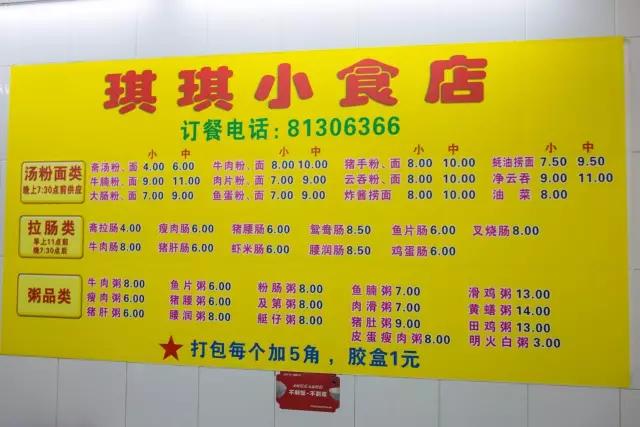 琪琪小食店
订餐电话：81306366
小 中 小 中 小 中 小 中
汤粉面类
晚上7:30点前供应
斋汤粉、面 4.00 6.00 牛肉粉、面 8.00 10.00 猪手粉、面 8.00 10.00 蚝油捞面 7.50 9.50
牛腩粉、面 9.00 11.00 肉片粉、面 7.00 9.00 云吞粉、面 8.00 10.00 净云吞 9.00 11.00
大肠粉、面 7.00 9.00 鱼蛋粉、面 7.00 9.00 炸酱捞面 8.00 10.00 油菜 8.00
拉肠类
早上11点前
晚7:30点后
斋拉肠4.00 瘦肉肠6.00 猪腰肠6.00 鸳鸯肠8.50 鱼片肠6.00 叉烧肠8.00
牛肉肠8.00 猪肝肠6.00 虾米肠6.00 腰润肠8.50 鸡蛋肠6.00
粥品类
牛肉粥8.00 鱼片粥6.00 粉肠粥8.00 鱼腩粥7.00 滑鸡粥13.00
瘦肉粥6.00 猪腰粥6.00 及第粥8.00 肉滑粥7.00 黄鳝粥14.00
猪肝粥6.00 腰润粥8.00 艇仔粥8.00 猪肚粥9.00 田鸡粥13.00
皮蛋瘦肉粥8.00 明火白粥3.00
★打包每个加5角，胶盒1元